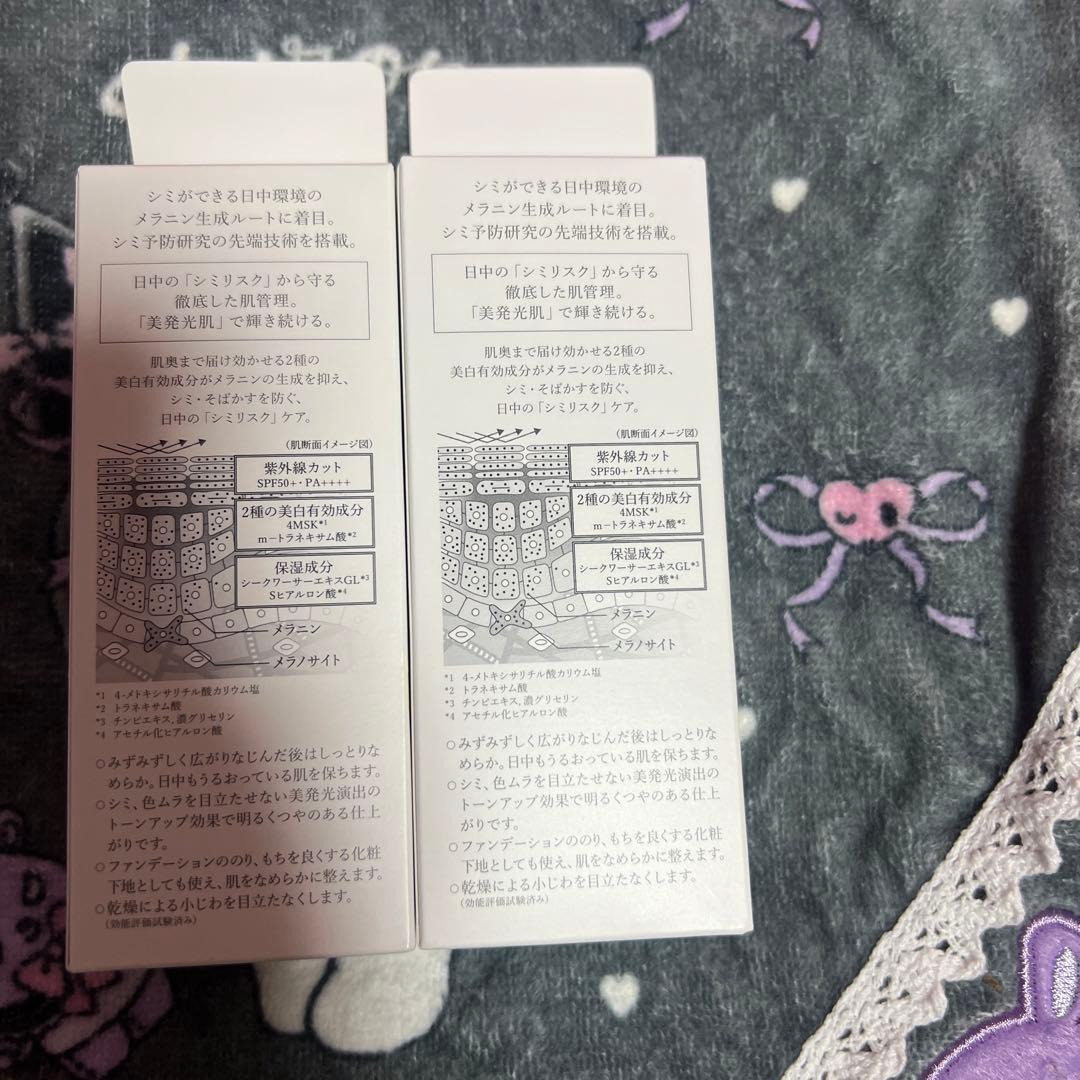 シミができる日中環境の
メラニン生成ルートに着目。
シミ予防研究の先端技術を搭載。
日中の「シミリスク」から守る
徹底した肌管理。
「美発光肌」で輝き続ける。
肌奥まで届け効かせる2種の
美白有効成分がメラニンの生成を抑え、
シミ・そばかすを防ぐ、
日中の「シミリスク」ケア。
(肌断面イメージ図)
紫外線カット
SPF50+・PA++++
2種の美白有効成分
4MSK*1
m-トラネキサム酸*2
保湿成分
シークワーサーエキスGL*3
Sヒアルロン酸*4
メラニン
メラノサイト
*1 4-メトキシサリチル酸カリウム塩
*2 トラネキサム酸
*3 チンピエキス,濃グリセリン
*4 アセチル化ヒアルロン酸
○みずみずしく広がりなじんだ後はしっとりな
めらか。日中もうるおっている肌を保ちます。
○シミ、色ムラを目立たせない美発光演出の
トーンアップ効果で明るくつやのある仕上
がりです。
○ファンデーションののり、もちを良くする化粧
下地としても使え、肌をなめらかに整えます。
○乾燥による小じわを目立たなくします。
(効能評価試験済み)
シミができる日中環境の
メラニン生成ルートに着目。
シミ予防研究の先端技術を搭載。
日中の「シミリスク」から守る
徹底した肌管理。
「美発光肌」で輝き続ける。
肌奥まで届け効かせる2種の
美白有効成分がメラニンの生成を抑え、
シミ・そばかすを防ぐ、
日中の「シミリスク」ケア。
(肌断面イメージ図)
紫外線カット
SPF50+・PA++++
2種の美白有効成分
4MSK*1
m-トラネキサム酸*2
保湿成分
シークワーサーエキスGL*3
Sヒアルロン酸*4
メラニン
メラノサイト
*1 4-メトキシサリチル酸カリウム塩
*2 トラネキサム酸
*3 チンピエキス,濃グリセリン
*4 アセチル化ヒアルロン酸
○みずみずしく広がりなじんだ後はしっとりな
めらか。日中もうるおっている肌を保ちます。
○シミ、色ムラを目立たせない美発光演出の
トーンアップ効果で明るくつやのある仕上
がりです。
○ファンデーションののり、もちを良くする化粧
下地としても使え、肌をなめらかに整えます。
○乾燥による小じわを目立たなくします。
(効能評価試験済み)